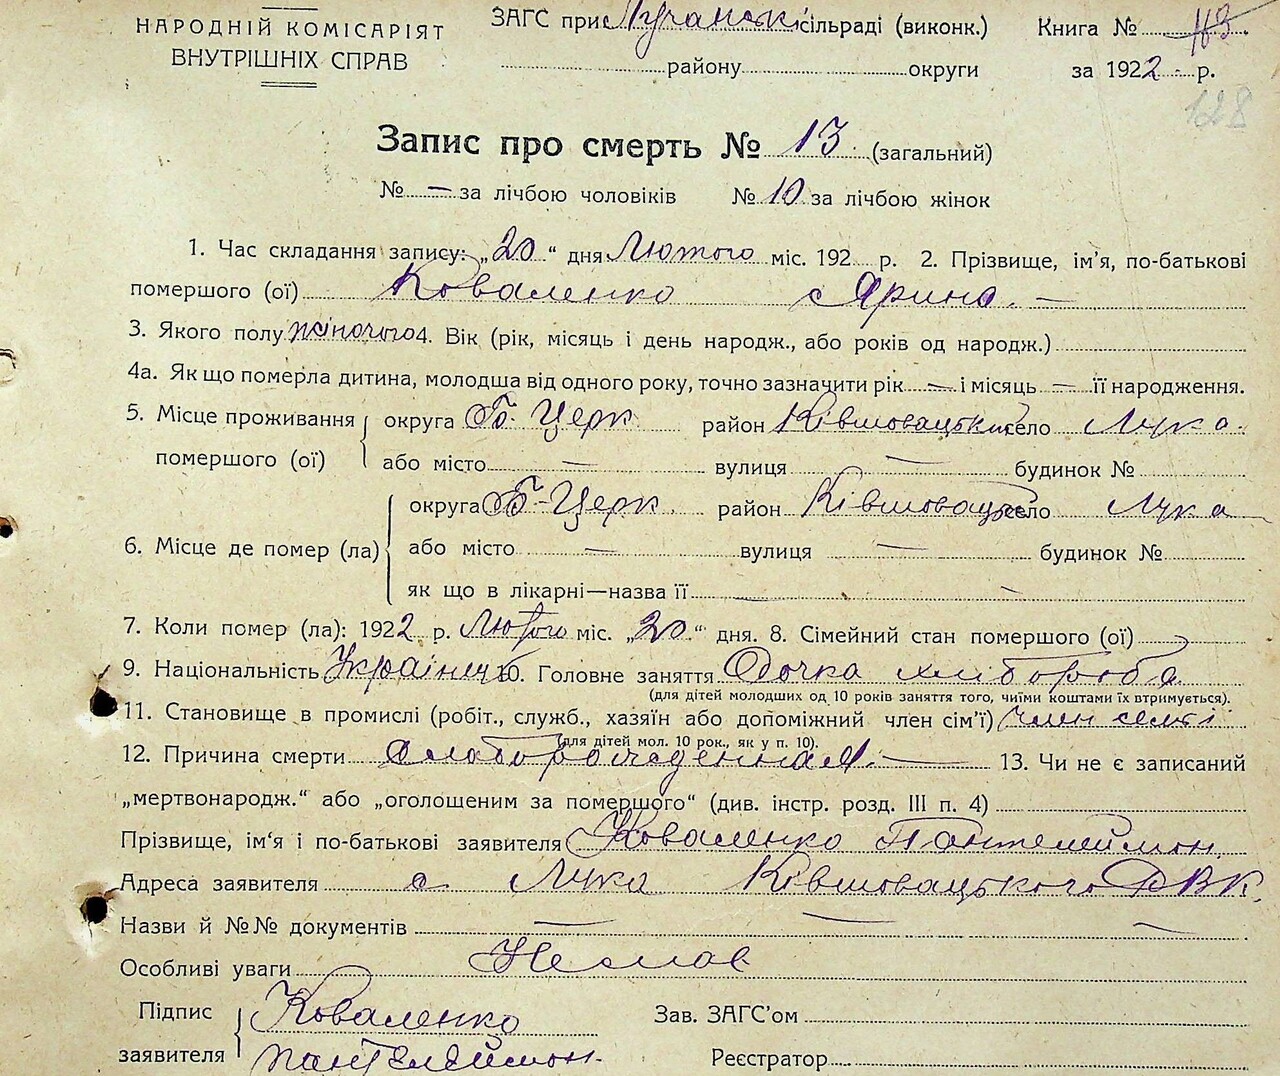 НАРОДНІЙ КОМІСАРІЯТ
ВНУТРІШНІХ СПРАВ
ЗАГС при Лучанскі сільраді (виконк.)
району округи
Книга №
за 1922 р.
128
Запис про смерть № 13 (загальний)
№ — за лічбою чоловіків № 10 за лічбою жінок
1. Час складання запису: „20“ дня Лютого міс. 192 р. 2. Прізвище, ім'я, по-батькові
помершого (ої) Коваленко Ярина. —
3. Якого полу жіночого 4. Вік (рік, місяць і день народж., або років од народж.)
4а. Як що померла дитина, молодша від одного року, точно зазначити рік — і місяць — її народження.
5. Місце проживання помершого (ої) округа Б-Церк район Ківшовацьк село Лука.
або місто — вулиця — будинок №
6. Місце де помер (ла) округа Б-Церк район Ківшовацьк село Лука
або місто — вулиця — будинок №
як що в лікарні—назва її —
7. Коли помер (ла): 1922 р. Лютого міс. „20“ дня. 8. Сімейний стан помершого (ої)
9. Національність Українец 10. Головне заняття Дочка хлібороба
(для дітей молодших од 10 років заняття того, чиїми коштами їх втримується).
11. Становище в промислі (робіт., служб., хазяїн або допоміжний член сім'ї) член семї
(для дітей мол. 10 рок., як у п. 10).
12. Причина смерти слаборожденная. — 13. Чи не є записаний
„мертвонародж.“ або „оголошеним за помершого“ (див. інстр. розд. III п. 4)
Прізвище, ім'я і по-батькові заявителя Коваленко Пантелеймон.
Адреса заявителя с Лука Ківшовацького РВК.
Назви й №№ документів — — —
Особливі уваги Немає
Підпис заявителя Коваленко
пантелеймон.
Зав. ЗАГС'ом
Реєстратор